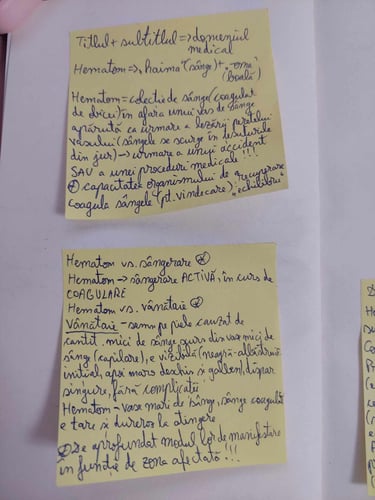 Titlul + subtitlul => domeniul
medical
Hematom => haima (sânge) + -oma
(boală)
Hematom = colecție de sânge (coagulat
de obicei) în afara unui vas de sânge
apărută ca urmare a lezării peretelui
vasului (sângele se scurge în țesuturile
din jur) -> urmare a unui accident
SAU a unei proceduri medicale!!!
capacitatea organismului de recuperare
coagula sângele (pt. vindecare); "echilibru"
Hematom vs. sângerare
Hematom -> sângerare ACTIVĂ, în curs de
COAGULARE
Hematom vs. vânătaie
Vânătaie - semn pe piele cauzat de
cantit. mici de sânge scurs din vase mici de
sânge (capilare), e vizibilă (neagră-albăstruie
inițial, apoi maro deschis și galben), dispar
singure, fără complicații
Hematom - vase mari de sânge, sânge coagulat
e tare și dureros la atingere
De aprofundat modul lor de manifestare
în funcție de zona afectată!!!